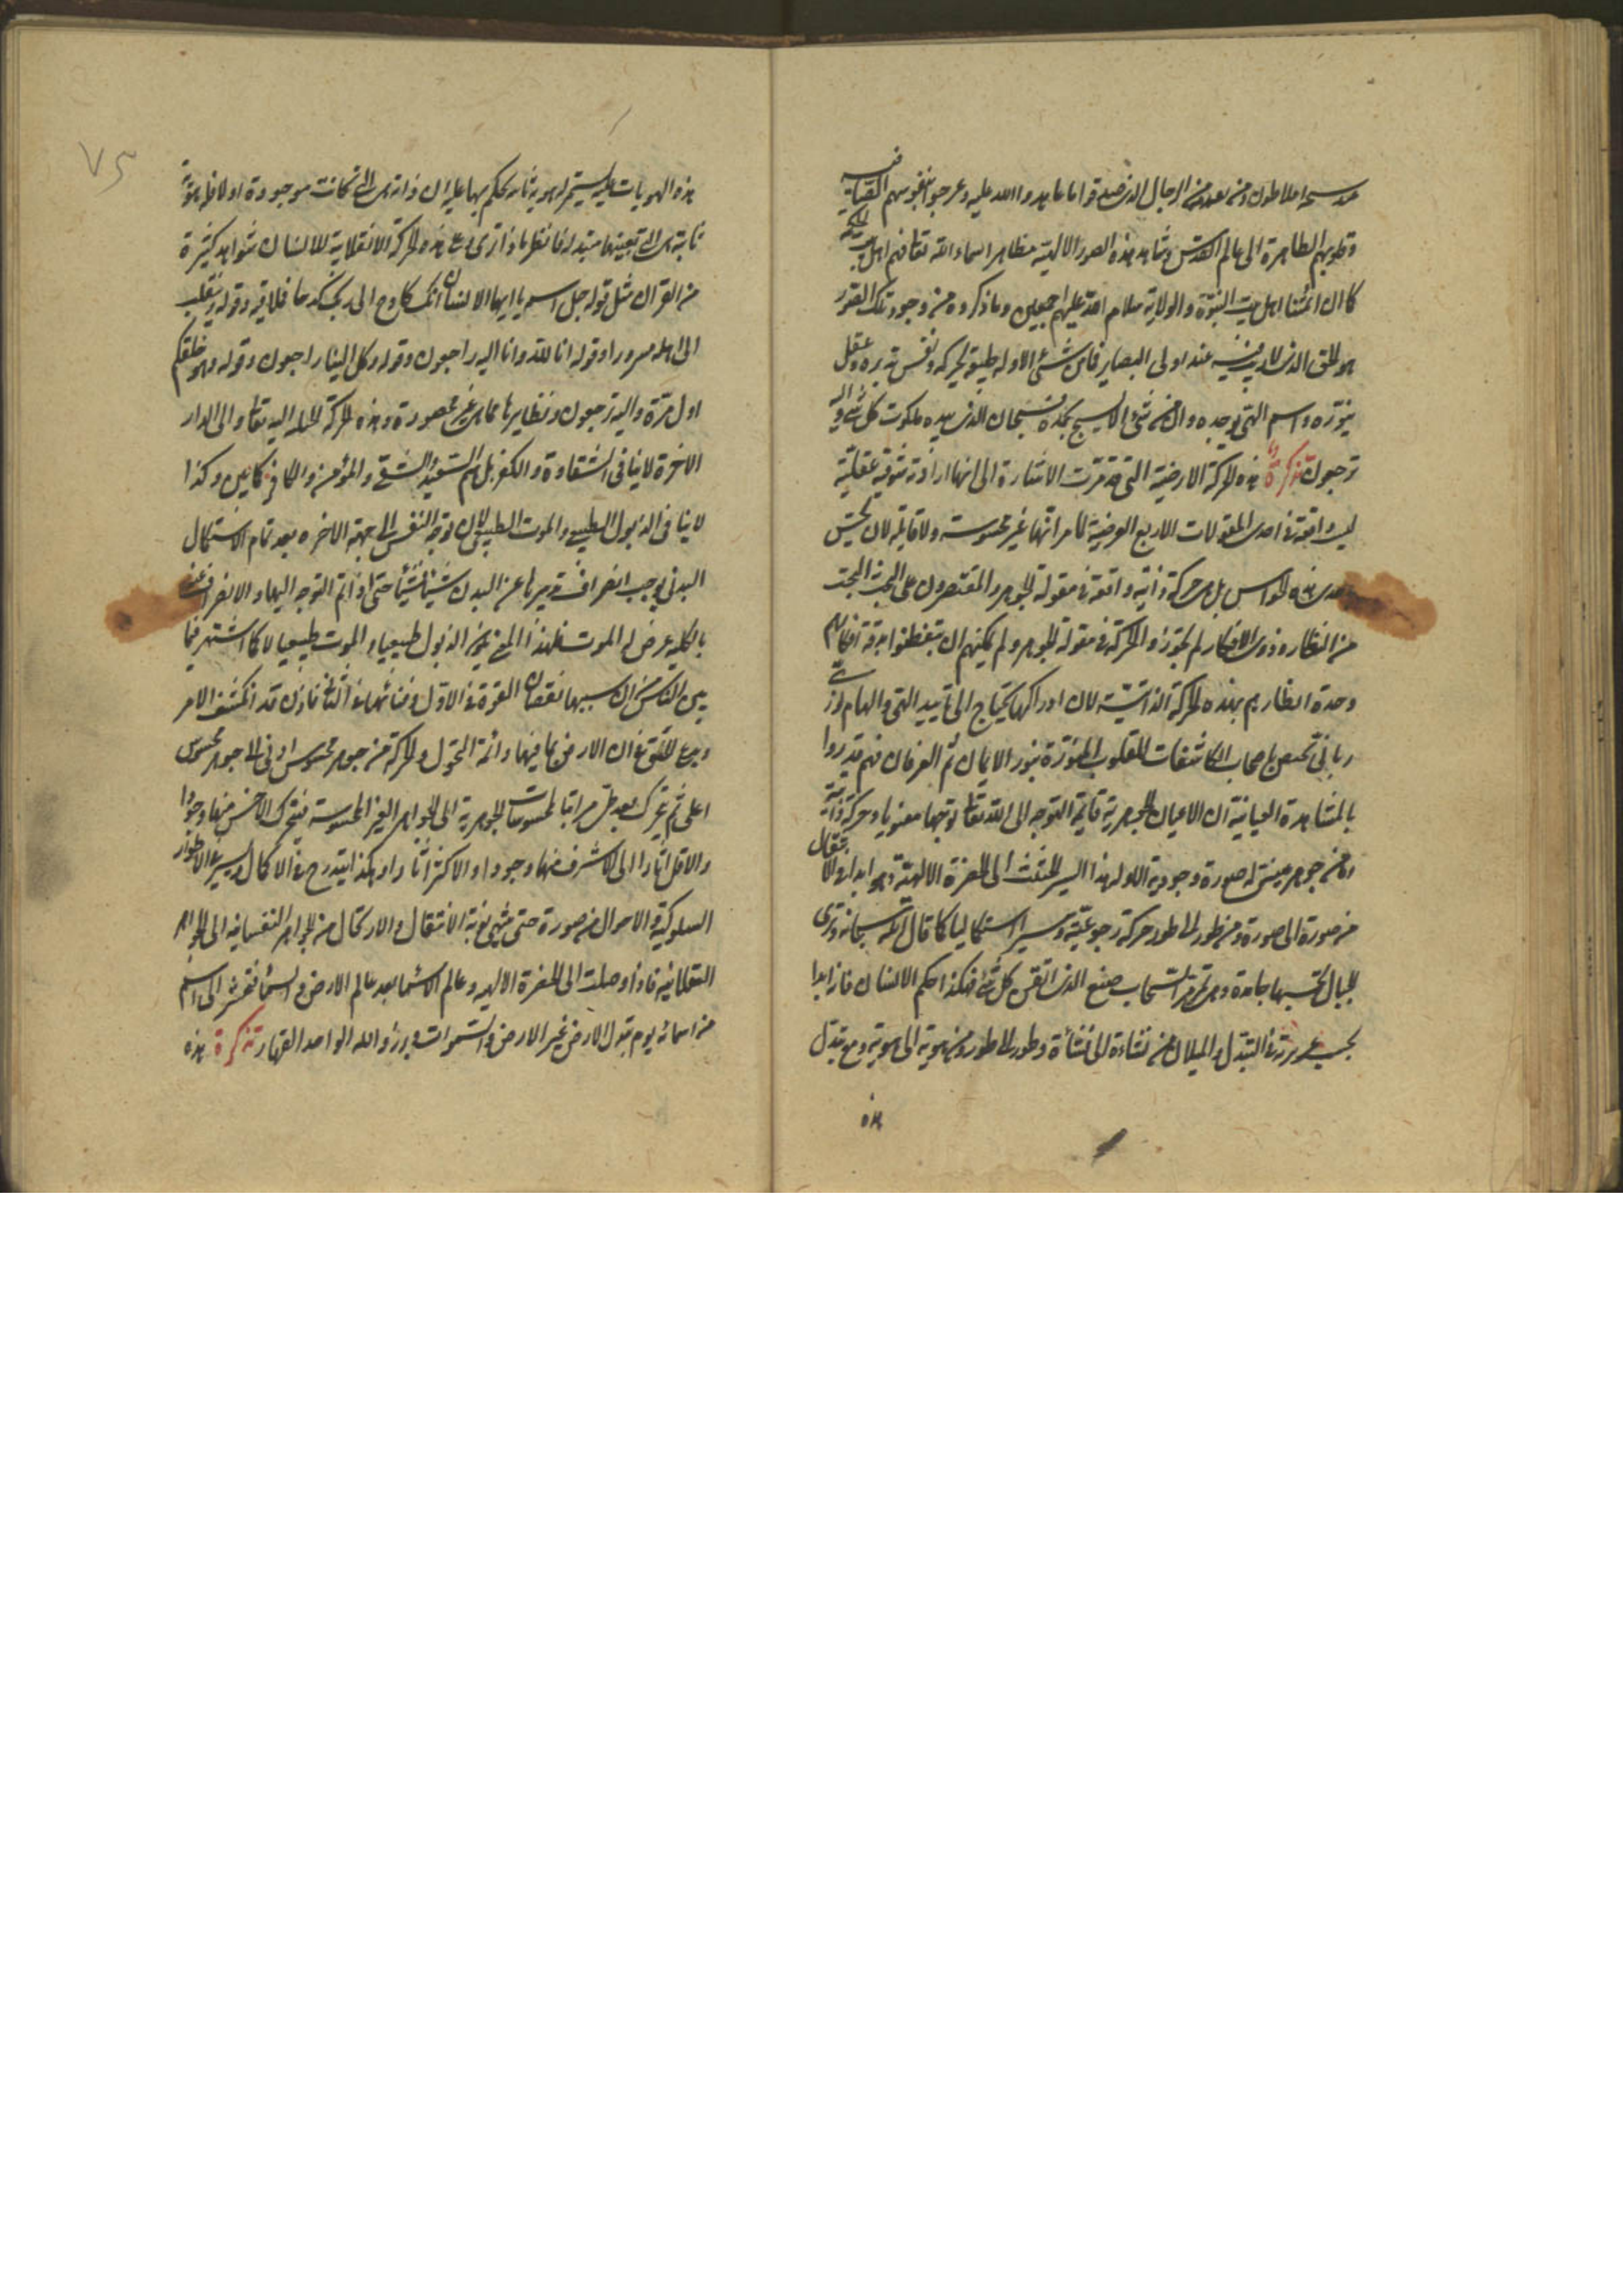 قدس سره افلاطون ومن بعده من الرجال الذين صدقوا ما عاهدوا الله عليه وعرجوا بنفوسهم النقية
وقلوبهم الطاهرة الى عالم القدس وشاهد هذه الصور الالهية مظاهر اسماء الله تعالى فهم اهل بيت الحكمة
كما ان ائمتنا اهل بيت النبوة والولاية سلام الله عليهم اجمعين وما ذكروه من وجود تلك الصور
هو الحق الذى لا ريب فيه عند اولى البصاير فما من شئ الا وله طبيعة تحركه ونفس تدبره وعقل
ينوره واسم الهى يوجده وان من شئ الا يسبح بحمده فسبحان الذى بيده ملكوت كل شئ واليه
ترجعون تذكرة هذه الحركة الارضية التى قد مرت الاشارة الى انها ارادية شوقية عقلية
ليست واقعة فى احدى المقولات الاربع العرضية لما مر انها غير محسوسة ولا قابلة لان تحس
باحدى هذه الحواس بل هى حركة ذاتية واقعة فى مقولة الجوهر والمقتصرون على البحث البحت
من النظار وذوى الافكار لم يجوزوا الحركة فى مقولة الجوهر ولم يمكنهم ان يتفطنوا بدقة افكارهم
وحدة انظارهم بهذه الحركة الذاتية لان ادراكها يحتاج الى تاييد الهى والهام
ربانى يختص باصحاب المكاشفات القلوب المنورة بنور الايمان ثم العرفان فهم قد رروا
بالمشاهدة العيانية ان الاعيان الجوهرية قايمة التوجه الى الله تعالى توجها معنويا وحركة ذاتية
وما من جوهر حسى له صورة وجودية الا وله هذا السير الحثيث الى الحضرة الالهية وهو ابدا فى الانتقال
من صورة الى صورة ومن طور الى طور حركة رجوعية وسيرا استكماليا كما قال الله سبحانه وترى
الجبال تحسبها جامدة وهى تمر مر السحاب صنع الذى اتقن كل شئ فهكذا حكم الانسان فانه ابدا
بحسب غريزته فى التبدل والميلان من نشاءة الى نشأة وطور الى طور ومن هوية الى هوية ومع تبدل
هذه
٧٥
هذه الهويات عليه يستمر له هوية ثابتة يحكم بها عليه ان ذاته هى التى كانت موجودة اولا فله هوية
ثابتة هى التى بعينها متبدلة فانظر ماذا ترى وعلى هذه الحركة الانقلابية للانسان شواهد كثيرة
من القران مثل قوله جل اسمه يا ايها الانسان انك كادح الى ربك كدحا فملاقيه وقوله وينقلب
الى اهله مسرورا وقوله انا لله وانا اليه راجعون وقوله كل الينا راجعون وقوله وهو خلقكم
اول مرة واليه ترجعون ونظايرها مما هى غير محصورة وهذه الحركة الجبلية اليه تعالى والى الدار
الاخرة لا ينافى الشقاوة والكفر بل هم السعيد والشقى والمؤمن والكافر كاين وكذا
لا ينافى الذبول الطبيعى والموت الطبيعى لان توجه النفس الى جهة الاخره بعد تمام الاستكمال
البدنى يوجب انصراف تدبيرها عن البدن شيئا فشيئا حتى اذا تم التوجه اليها والانصراف عنه
بالكليه عرض له الموت فلهذا المعنى يكون الذبول طبيعيا والموت طبيعيا لا كما اشتهر فيما
بين الناس من ان سببهما نقصان القوة فى الاول وفنائها فى الثانى فاذن قد انكشف الامر
وبدع للتحقق ان الارض بما فيها دائمة التحول والحركة من جوهر محسوس ادنى الى جوهر محسوس
اعلى ثم يتحرك بعد طى مراتب المحسوسات الجوهرية الى الجواهر الغير المحسوسة فيتحرك الاخس منها وجودا
والاقل اثارا الى الاشرف منها وجودا والاكثر اثارا وهكذا يتدرج فى الاكمال ويسير فى الاطوار
السلوكية فى الاحوال من صورة حتى ينتهى نوبة الانتقال والارتحال من الجواهر النفسانيه الى الجواهر
العقلانيه فاذا وصلت الى الحضرة الالهيه وعالم الاسما بعد عالم الارض والسما فتحشر الى اسم
من اسمائه يوم تبدل الارض غير الارض والسموات وبرزوا لله الواحد القهار تذكرة هذه